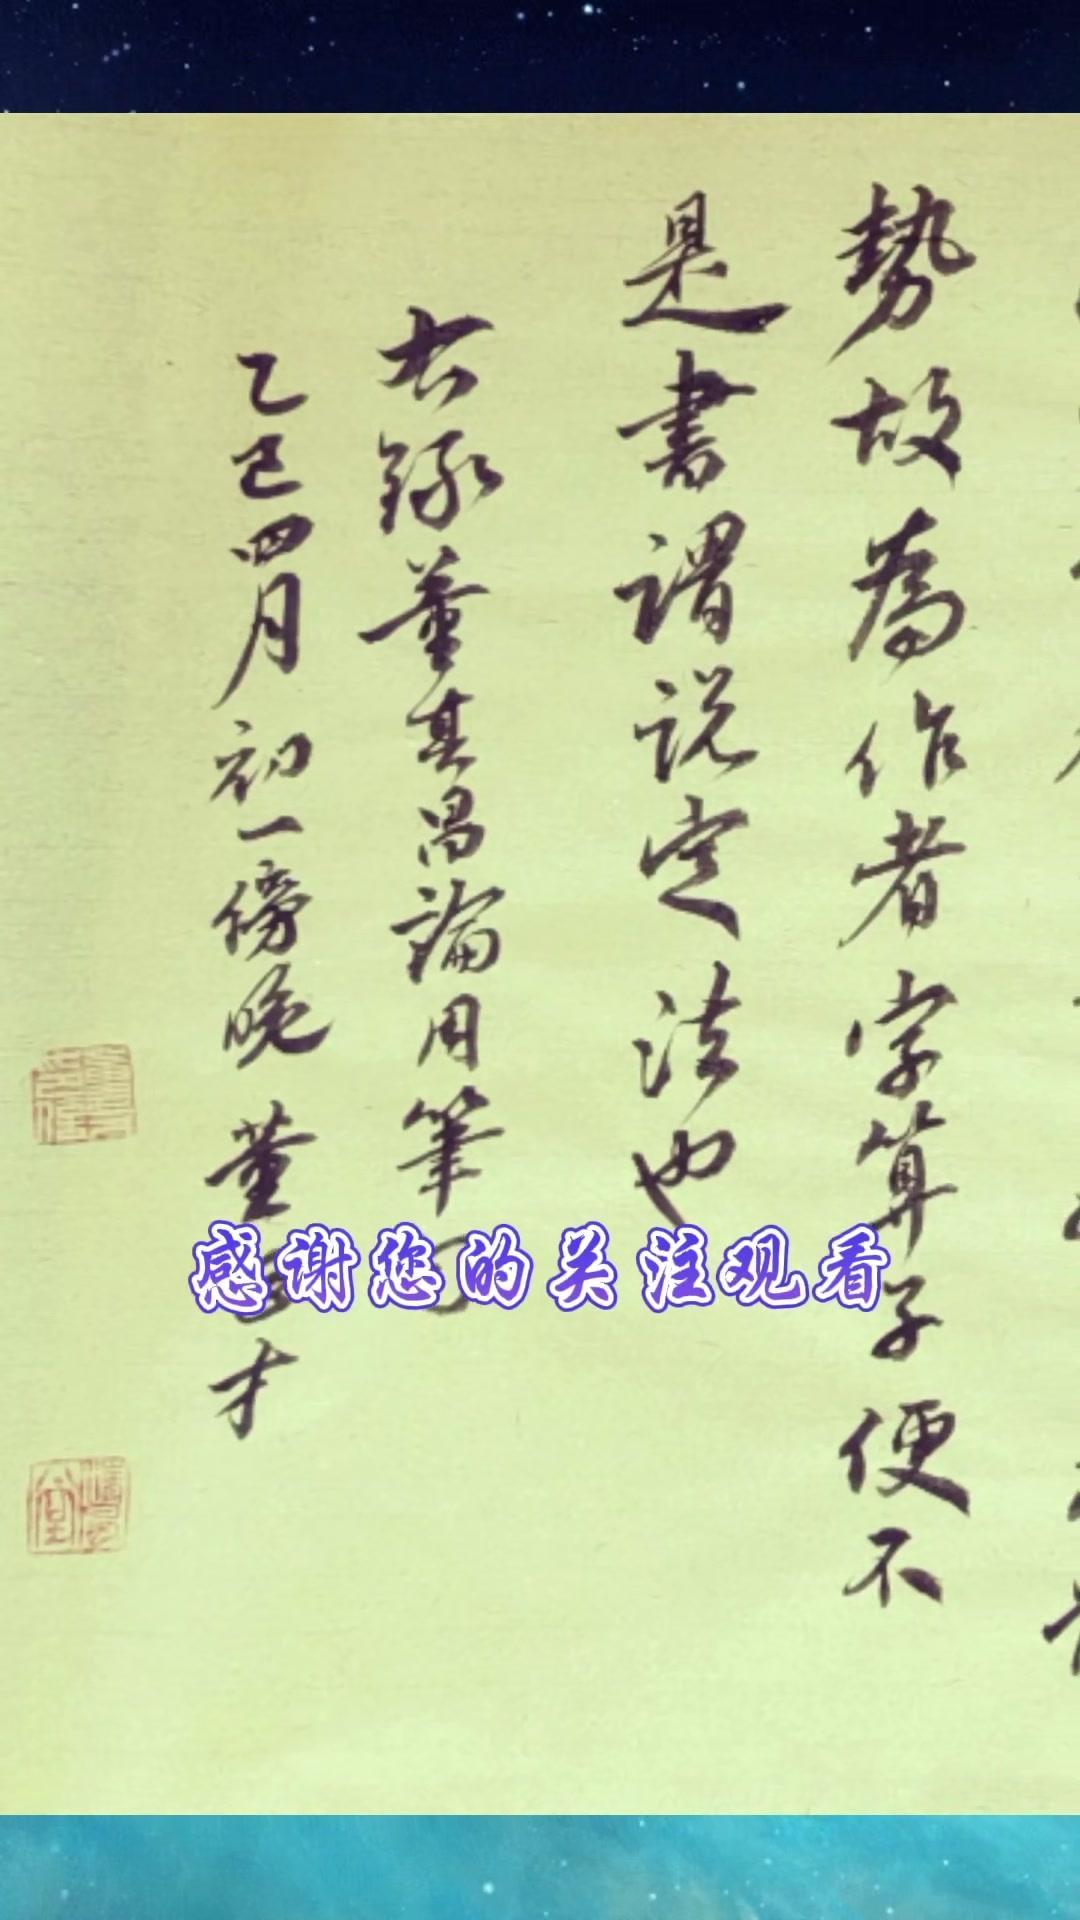 勢故為作者字算子便不
是書謂說定法也
右錄董其昌論用筆
乙巳四月初一傍晚 董 才
感谢您的关注观看